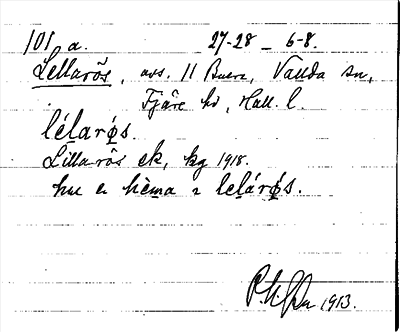 101 a. 27-28 - 6-8.
Lellarös, avs. 11 Buera, Vallda sn,
Fjäre hd, Hall. l.
lélarǿs.
Lillarös ek, kg 1918.
hu e hèma i lelárǿs.
1913.